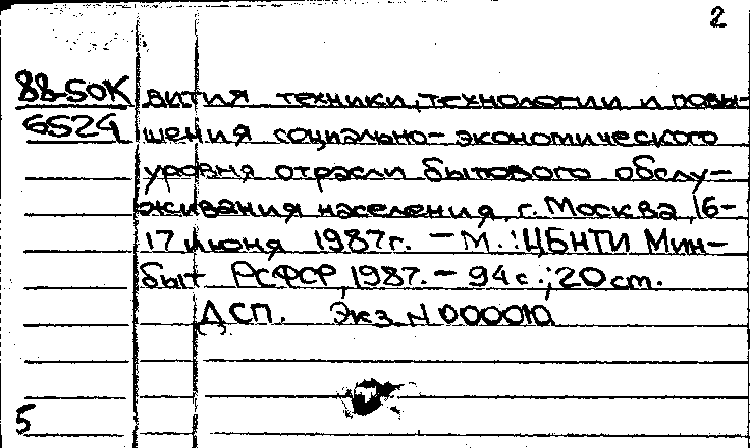 2
88-50К вития техники, технологии и повы-
6524 шения социально-экономического
уровня отрасли бытового обслу-
живания населения, г. Москва, 16-
17 июня 1987г. - М.: ЦБНТИ Мин-
быт РСФСР, 1987. - 94 с.; 20 см.
ДСП. Экз. N 000010
5